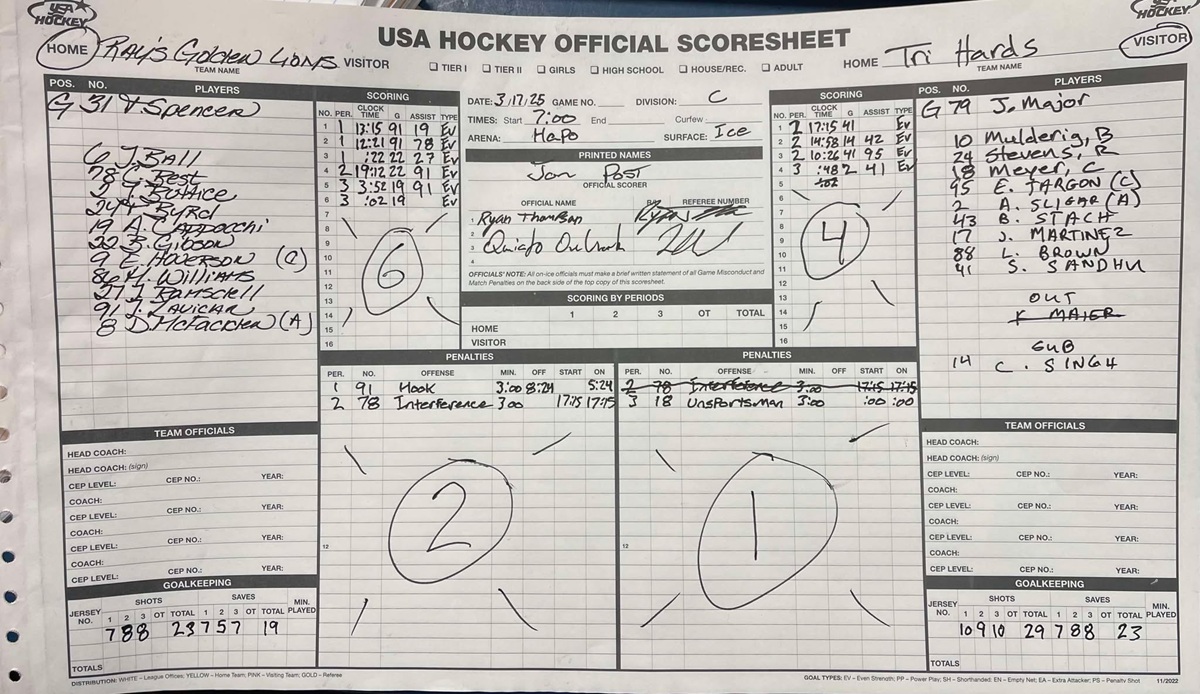 USA HOCKEY
USA HOCKEY
USA HOCKEY OFFICIAL SCORESHEET
HOME Ray's Golden Lions VISITOR
TEAM NAME
☐ TIER I ☐ TIER II ☐ GIRLS ☐ HIGH SCHOOL ☐ HOUSE/REC. ☐ ADULT
HOME Tri Hards VISITOR
TEAM NAME
POS. NO. PLAYERS
G 31 Spencer
6 J. Ball
78 Best
9 E. Hoverson (C)
22 B. Gibson
86 Williams
8 D. McFadden (A)
SCORING
NO. PER. CLOCK TIME G ASSIST TYPE
1 1 13:15 91 19 Ev
2 1 12:21 91 78 Ev
3 1 :22 22 27 Ev
4 2 19:12 22 91 Ev
5 3 3:52 19 91 Ev
6 3 :02 19 Ev
7
8
9
10
11
12
13
14
15
16
6
DATE: 3/17/25 GAME NO. DIVISION: C
TIMES: Start 7:00 End Curfew
ARENA: Hapo SURFACE: Ice
PRINTED NAMES
Jon Post
OFFICIAL SCORER
OFFICIAL NAME REFEREE NUMBER
1 Ryan Thompson
2
3
4
OFFICIALS' NOTE: All on-ice officials must make a brief written statement of all Game Misconduct and
Match Penalties on the back side of the top copy of this scoresheet.
SCORING BY PERIODS
1 2 3 OT TOTAL
HOME
VISITOR
SCORING
NO. PER. CLOCK TIME G ASSIST TYPE
1 2 17:15 41 Ev
2 2 14:58 14 42 Ev
3 2 10:26 41 95 Ev
4 3 :48 2 41 Ev
5 :02
6
7
8
9
10
11
12
13
14
15
16
4
PLAYERS
POS. NO.
G 79 J. Major
10 Mulderig, B
24 Stevens, R
18 Meyer, C
95 E. FARGON (C)
2 A. SLIGAR (A)
43 B. STACH
17 J. MARTINEZ
88 L. BROWN
41 S. SANDHU
OUT
MAIER
SUB
14 C. SINGH
PENALTIES
PER. NO. OFFENSE MIN. OFF START ON
1 91 Hook 3:00 8:24 5:24
2 78 Interference 3:00 17:15 17:15
12
2
PENALTIES
PER. NO. OFFENSE MIN. OFF START ON
2 78 Interference 3:00 17:15 17:15
3 18 Unsportsman 3:00 :00 :00
12
1
TEAM OFFICIALS
HEAD COACH:
HEAD COACH: (sign)
CEP LEVEL: CEP NO.: YEAR:
COACH:
CEP LEVEL: CEP NO.: YEAR:
COACH:
CEP LEVEL: CEP NO.: YEAR:
COACH:
CEP LEVEL: CEP NO.: YEAR:
GOALKEEPING
SHOTS SAVES
JERSEY NO. 1 2 3 OT TOTAL 1 2 3 OT TOTAL MIN. PLAYED
7 8 8 23 7 5 7 19
TOTALS
TEAM OFFICIALS
HEAD COACH:
HEAD COACH: (sign)
CEP LEVEL: CEP NO.: YEAR:
COACH:
CEP LEVEL: CEP NO.: YEAR:
COACH:
CEP LEVEL: CEP NO.: YEAR:
COACH:
CEP LEVEL: CEP NO.: YEAR:
GOALKEEPING
SHOTS SAVES
JERSEY NO. 1 2 3 OT TOTAL 1 2 3 OT TOTAL MIN. PLAYED
10 9 10 29 7 8 8 23
TOTALS
DISTRIBUTION: WHITE – League Offices; YELLOW – Home Team; PINK – Visiting Team; GOLD – Referee
GOAL TYPES: EV – Even Strength; PP – Power Play; SH – Shorthanded; EN – Empty Net; EA – Extra Attacker; PS – Penalty Shot 11/2022